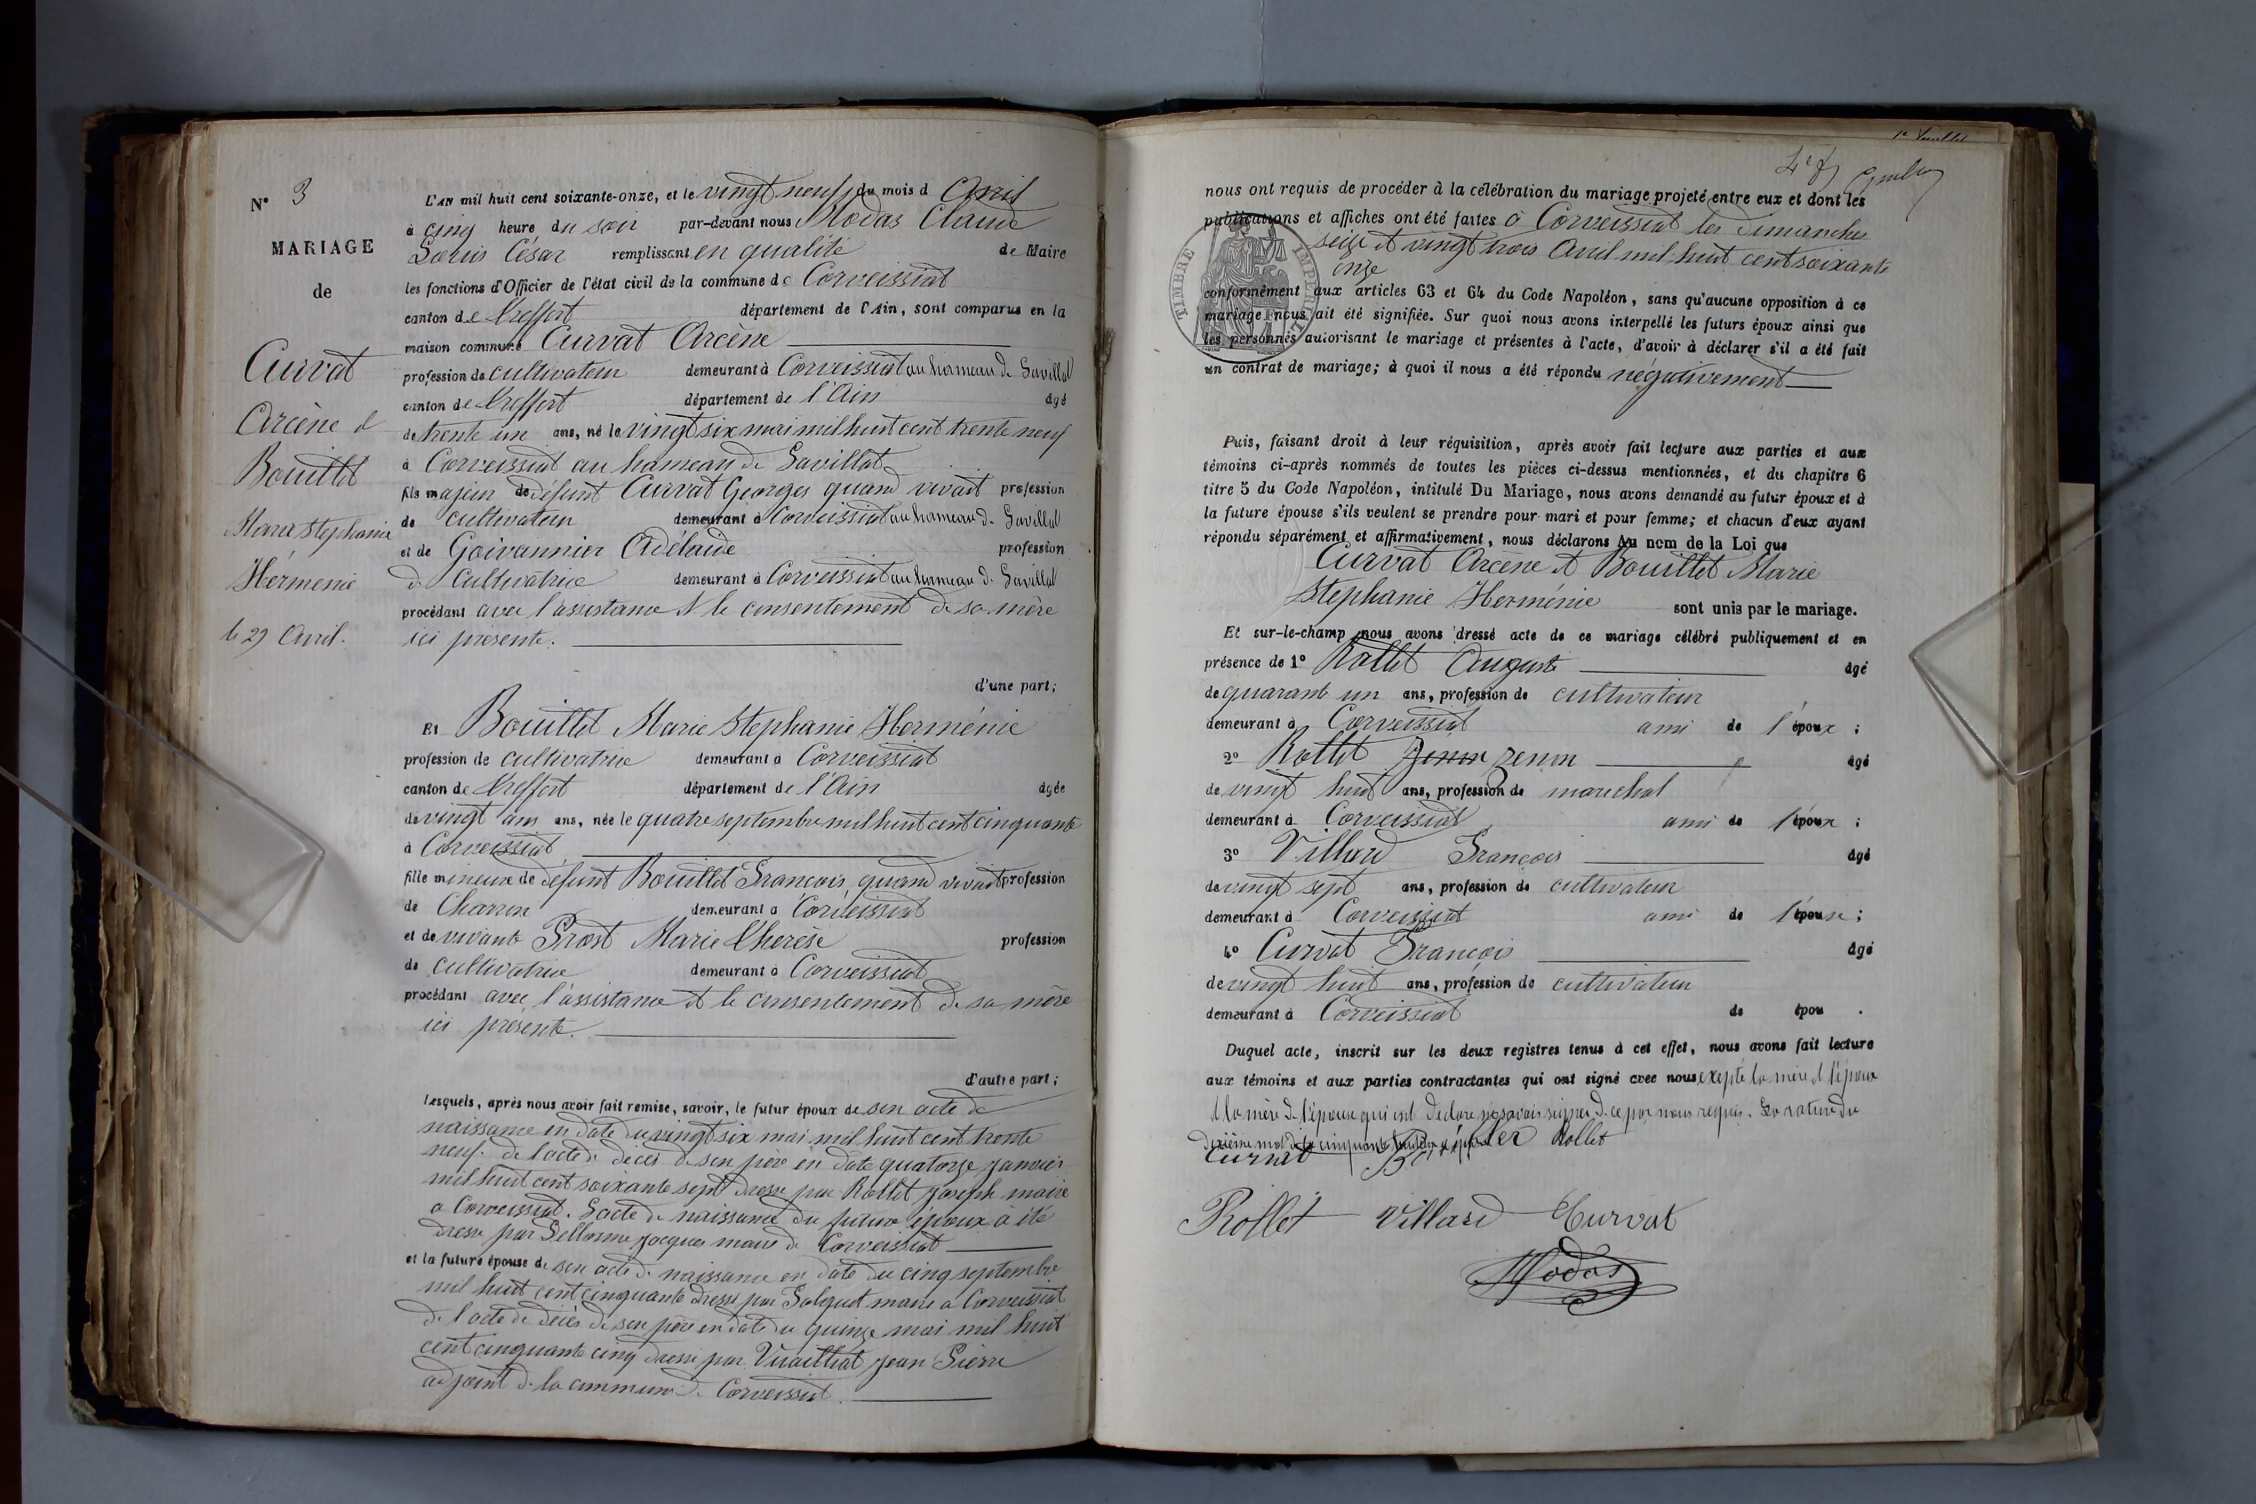 N° 3
MARIAGE
de
Curvat
Arcène et
Bouillet
Marie Stephanie
Herménie
le 29 Avril.
L'AN mil huit cent soixante-onze, et le vingt neuf du mois d Avril
à cinq heure du soir par-devant nous Modas Claude
Louis César remplissant en qualité de Maire
les fonctions d'Officier de l'état civil de la commune de Corveissiat
canton de Treffort département de l'Ain, sont comparus en la
maison commune Curvat Arcène
profession de cultivateur demeurant à Corveissiat au hameau de Savillat
canton de Treffort département de l'Ain âgé
de trente un ans, né le vingt six mai mil huit cent trente neuf
à Corveissiat au hameau de Savillat
fils majeur de défunt Curvat Georges quand vivait profession
de cultivateur demeurant à Corveissiat au hameau de Savillat
et de Goivannier Adélaide profession
de cultivatrice demeurant à Corveissiat au hameau de Savillat
procédant avec l'assistance et le consentement de sa mère
ici presente.
d'une part;
Et Bouillet Marie Stephanie Herménie
profession de cultivatrice demeurant à Corveissiat
canton de Treffort département de l'Ain âgée
de vingt ans ans, née le quatre septembre mil huit cent cinquante
à Corveissiat
fille mineure de défunt Bouillet François, quand vivait profession
de Charron demeurant à Corveissiat
et de vivante Prost Marie Therèse profession
de cultivatrice demeurant à Corveissiat
procédant avec l'assistance et le consentement de sa mère
ici présente.
d'autre part;
Lesquels, après nous avoir fait remise, savoir, le futur époux de son acte de
naissance en date du vingt six mai mil huit cent trente
neuf. de l'acte de décès de son père en date quatorze janvier
mil huit cent soixante sept dressé par Rollet Joseph maire
a Corveissiat. L'acte de naissance du futur époux à été
dressé par Jacques maire de Corveissiat
et la future épouse de son acte de naissance en date du cinq septembre
mil huit cent cinquante dressé par maire a Corveissiat
de l'acte de décès de son père en date du quinze mai mil huit
cent cinquante cinq dressé par Vuailliat Jean Pierre
adjoint de la commune de Corveissiat.
nous ont requis de procéder à la célébration du mariage projeté entre eux et dont les
publications et affiches ont été faites à Corveissiat les dimanches
seize et vingt trois Avril mil huit cent soixante
onze
TIMBRE IMPERIAL
conformément aux articles 63 et 64 du Code Napoléon, sans qu'aucune opposition à ce
mariage nous ait été signifiée. Sur quoi nous avons interpellé les futurs époux ainsi que
les personnes autorisant le mariage et présentes à l'acte, d'avoir à déclarer s'il a été fait
un contrat de mariage; à quoi il nous a été répondu négativement
Puis, faisant droit à leur réquisition, après avoir fait lecture aux parties et aux
témoins ci-après nommés de toutes les pièces ci-dessus mentionnées, et du chapitre 6
titre 5 du Code Napoléon, intitulé Du Mariage, nous avons demandé au futur époux et à
la future épouse s'ils veulent se prendre pour mari et pour femme; et chacun d'eux ayant
répondu séparément et affirmativement, nous déclarons Au nom de la Loi que
Curvat Arcène et Bouillet Marie
Stephanie Herménie sont unis par le mariage.
Et sur-le-champ nous avons dressé acte de ce mariage célébré publiquement et en
présence de 1° Rollet Auguste âgé
de quarante un ans, profession de cultivateur
demeurant à Corveissiat ami de l'époux;
2° Rollet Zenon zenon âgé
de vingt huit ans, profession de marechal
demeurant à Corveissiat ami de l'époux;
3° Villard François âgé
de vingt sept ans, profession de cultivateur
demeurant à Corveissiat ami de l'épouse;
4° Curvat François âgé
de vingt huit ans, profession de cultivateur
demeurant à Corveissiat de épou .
Duquel acte, inscrit sur les deux registres tenus à cet effet, nous avons fait lecture
aux témoins et aux parties contractantes qui ont signé avec nous excepté la mère de l'époux
et la mère de l'épouse qui ont déclaré ne savoir signer de ce par nous requis. La rature du
mot de la
Curvat Rollet
Rollet Villard Curvat
Modas